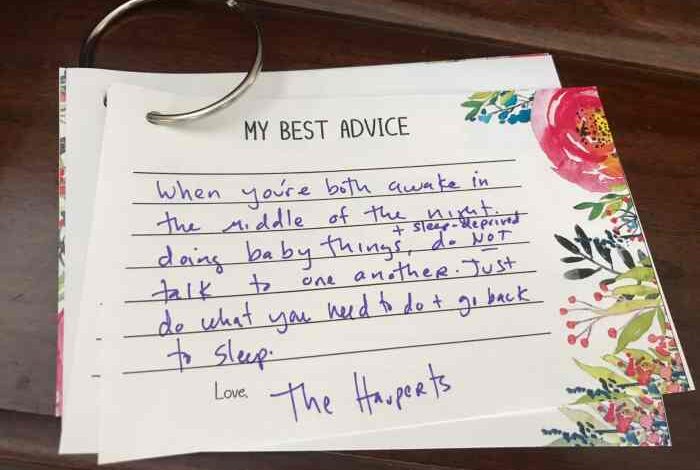 MY BEST ADVICE
When you're both awake in
the middle of the night.
+ sleep-deprived
doing baby things, do NOT
talk to one another. Just
do what you need to do + go back
to sleep.
Love, The Harperts